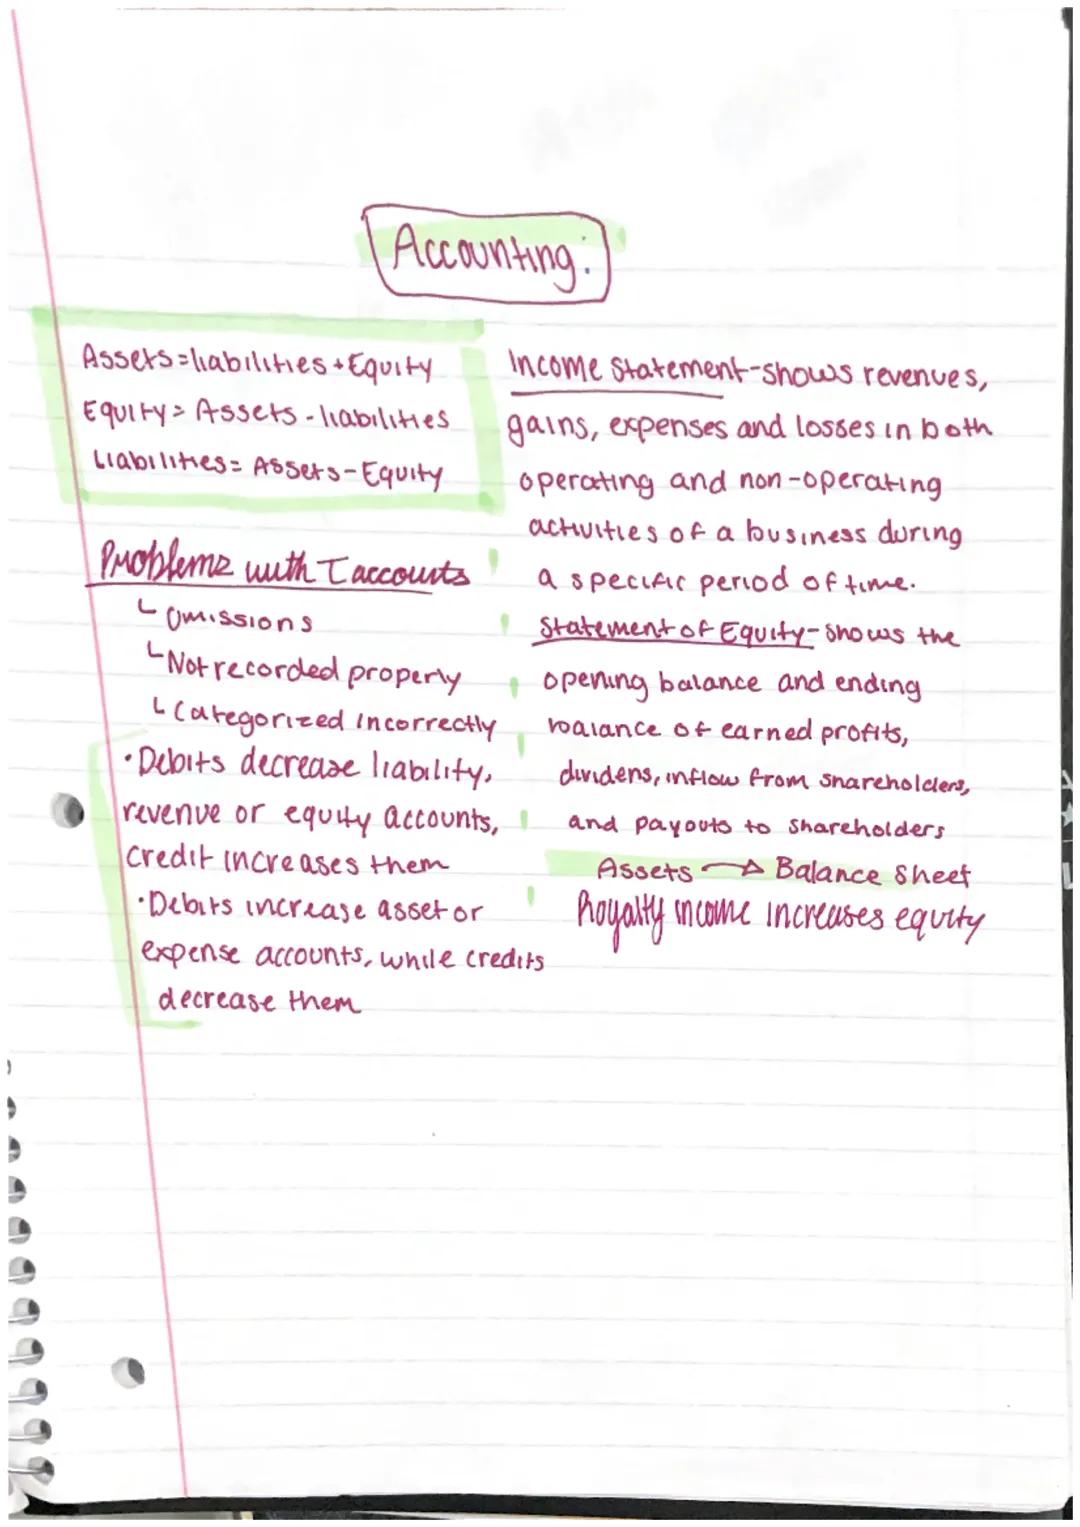 Accounting:
Assets=liabilities+Equity
Equity= Assets-liabilities
Liabilities= Assets-Equity
Problems with T accounts
Omissions
Not recorded properly
Categorized incorrectly
•Debits decrease liability,
revenue or equity accounts,
credit increases them
•Debits increase asset or
expense accounts, while credits
decrease them
Income Statement-shows revenues,
gains, expenses and losses in both
operating and non-operating
activities of a business during
a specific period of time.
Statement of Equity-shows the
opening balance and ending
balance of earned profits,
dividens, inflow from shareholders,
and payouts to shareholders
Assets → Balance Sheet
Royalty income increases equity